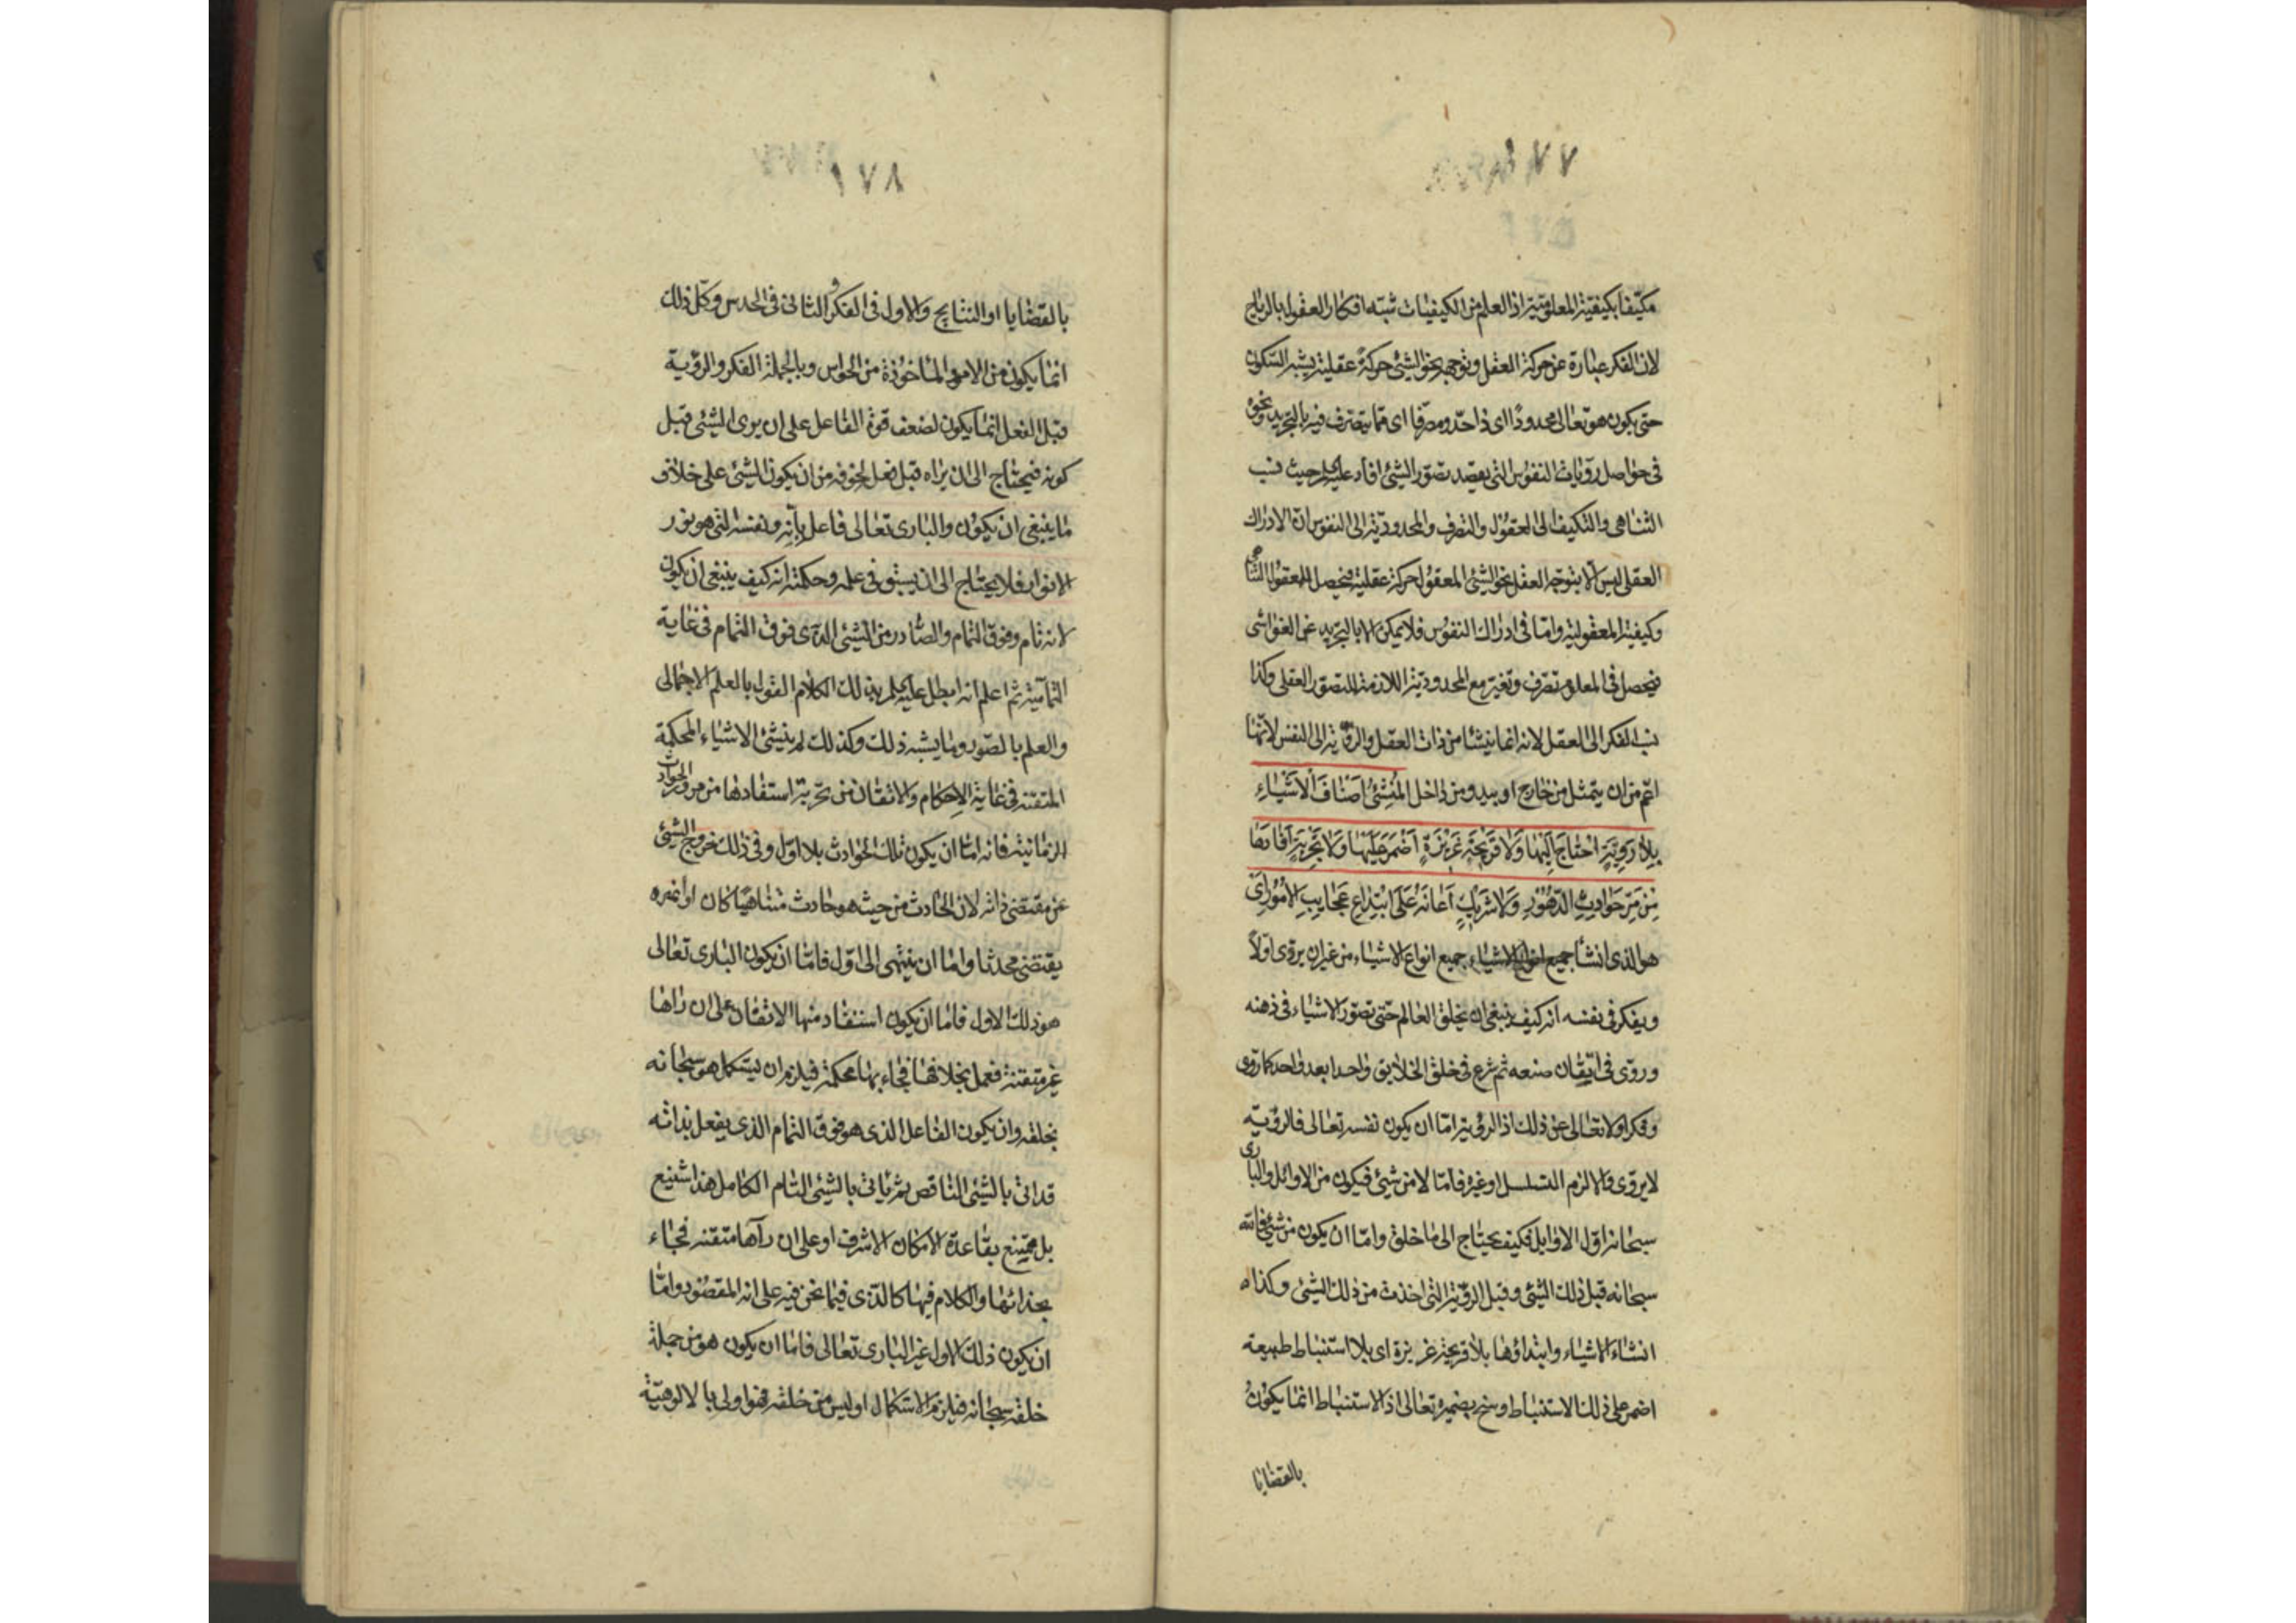 ١٧٧
مكيّفا بكيفيّة المعلوميّة اذ العلم من الكيفيات شبّه افكار العقول بالرياح
لان الفكر عبارة عن حركة العقل وتوجهه نحو الشئ حركة عقلية يشبه السكون
حتى يكون هو تعالى محدودًا اى ذا حدّ ومصرّفا اى مما يتصرف فيه بالتجريد ونحوه
فى حواصل رويات النفوس التى يعصد تصوّر الشئ افاد حيث نسب
التناهى والتكيف الى العقول والتصرف والمحدوديّة الى النفوس ان الادراك
العقلى ليس الا بتوجه العقل نحو الشئ المعقول حركة عقلية فيحصل للمعقول التناهى
وكيفية المعقولية وامّا فى ادراك النفوس فلا يمكن الا بالتجريد عن الغواشى
فيحصل فى المعلوم تصرّف وتغيّر مع المحدوديّة اللازمة للتصوّر العقلى وكذا
نسب الفكر الى العقل لانه انما ينشأ من ذات العقل والرويّة الى النفس لانّها
اعّم من ان يتمثل من خارج او يبدو من داخل الْمُنْشِئُ اَصْنَافَ الْاَشْيَاءِ
بِلاٰ رَوِيَّةٍ احْتٰاجَ اِلَيْهٰا وَلاٰ قَرِيحَةِ غَرِيزَةٍ اَضْمَرَ عَلَيْهٰا وَلاٰ تَجْرِبَةٍ اَفٰادَهٰا
مِنْ مَرِّ حَوَادِثِ الدُّهُورِ وَلاٰ شَرِيكٍ اَعٰانَهُ عَلَى ابْتِدٰاعِ عَجٰايِبِ الْاُمُورِ اى
هو الذى انشأ جميع جميع انواع الاشياء من غير ان يروّى اوّلاً
ويفكر فى نفسه انه كيف ينبغى ان يخلق العالم حتى تصوّر الاشياء فى ذهنه
وروّى فى اتقان صنعه ثم شرع فى خلق الخلايق واحدا بعد واحد كما روّى
وفكر اولا تعالى عن ذلك اذ الرويّة امّا ان يكون نفسه تعالى فالرويّة
لا يروّى والا لزم التسلسل او غيره فامّا لا من شئ فيكون من الاوائل والبارى
سبحانه اوّل الاوايل فكيف يحتاج الى ما خلق وامّا ان يكون من شئ فانّه
سبحانه قبل ذلك الشئ وقبل الرويّة التى اخذت من ذلك الشئ وكذا
انشاء الاشياء وابتداؤها بلا قريحة غريزة اى بلا استنباط طبيعة
اضمر على ذلك الاستنباط وسنح بضميره تعالى اذ الاستنباط انما يكون
بالقضايا
١٧٨
بالقضايا او النتايج والاول فى الفكر والثانى فى الحدس وكل ذلك
انما يكون من الامور المأخوذة من الحواس وبالجملة الفكر والرويّة
قبل الفعل انما يكون لضعف قوة الفاعل على ان يرى الشئ قبل
كونه فيحتاج الى ان يراه قبل فعل لخوفه من ان يكون الشئ على خلاف
ما ينبغى ان يكون والبارى تعالى فاعل بأنّه ونفسه التى هو نور
الانوار فلا يحتاج الى ان يسبق فى علمه وحكمته انه كيف ينبغى ان يكون
لانه تام وفوق التمام والصّادر من الشئ الذى فوق التمام فى غاية
التمامية ثم اعلم انه ابطل عليه بذلك الكلام القول بالعلم الاجمالى
والعلم بالصّور وما يشبه ذلك وكذلك لم ينشئ الاشياء المحكمة
المتقنة فى غاية الاحكام والاتقان من تجربة استفادها من مرور الحوادث
الزمانية فانه امّا ان يكون تلك الحوادث بلا اوّل وفى ذلك خروج الشئ
عن مقتضى ذاته لان الحادث من حيث هو حادث متناهيًا كان او غيره
يقتضى محدثا وامّا ان ينتهى الى اوّل فامّا ان يكون البارى تعالى
هو ذلك الاول فاما ان يكون استفاد منها الاتقان على ان راها
غير متقنة فعمل بخلافها فجاء بها محكمة فيلزم ان يستكمل هو سبحانه
بخلقه وان يكون الفاعل الذى هو فوق التمام الذى يفعل بذاته
قد اتى بالشئ الناقص ثم ياتى بالشئ التام الكامل هذا شنيع
بل ممتنع بقاعدة الامكان الاشرف او على ان رآها متقنه فجاء
بحذائها والكلام فيها كالذى فيما نحن فيه على انه المقصود وامّا
ان يكون ذلك الاول غير البارى تعالى فاما ان يكون هو من جملة
خلقه سبحانه فيلزم الاستكمال او ليس من خلقه فهو اولى بالالوهيّة